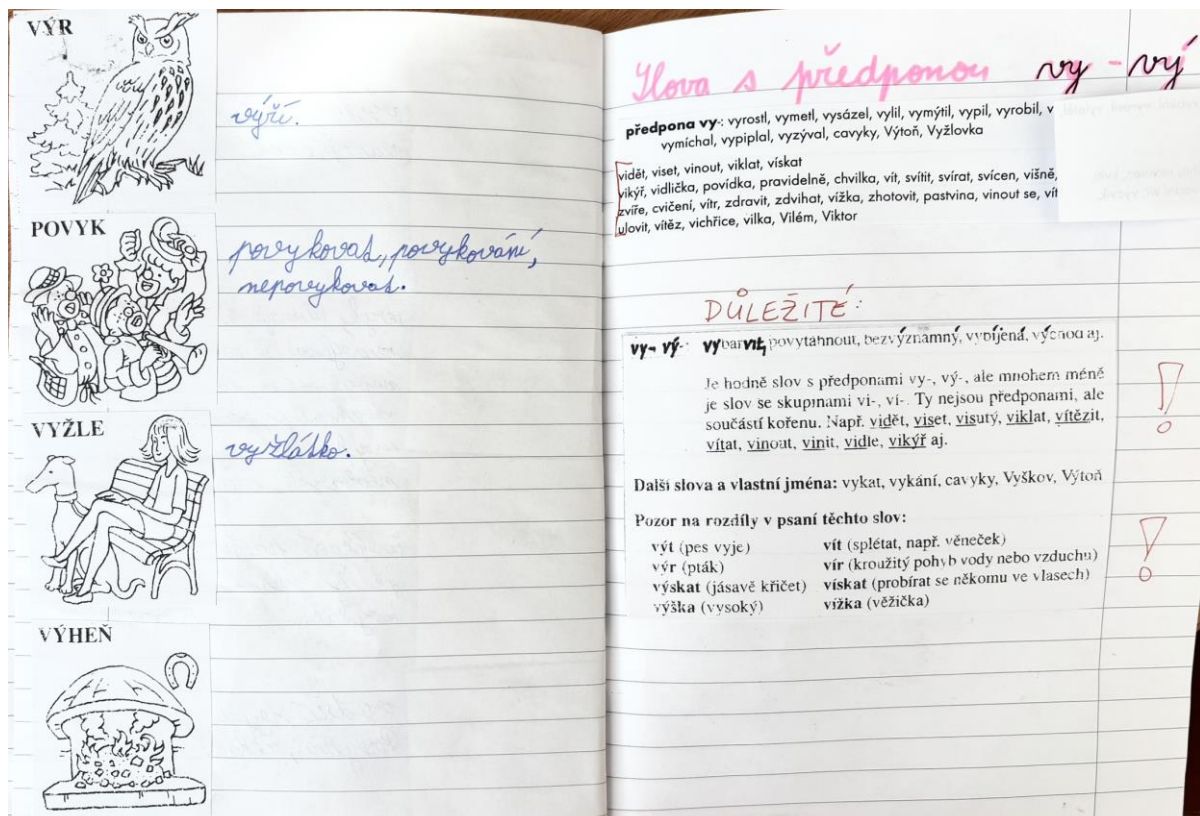 VÝR
výří.
POVYK
povykovat, povykování,
nepovykovat.
VYŽLE
vyžlátko.
VÝHEŇ
Slova s předponou vy - vý
předpona vy-: vyrostl, vymetl, vysázel, vylil, vymýtil, vypil, vyrobil, v
vymíchal, vypiplal, vyzýval, cavyky, Výtoň, Vyžlovka
vidět, viset, vinout, viklat, vískat
vikýř, vidlička, povídka, pravidelně, chvilka, vít, svítit, svírat, svícen, višně,
zvíře, cvičení, vítr, zdravit, zdvihat, vížka, zhotovit, pastvina, vinout se, vít
ulovit, vítěz, vichřice, vilka, Vilém, Viktor
DŮLEŽITÉ:
vy-, vý-: vybarvit, povytáhnout, bezvýznamný, vybíjená, východ aj.
Je hodně slov s předponami vy-, vý-, ale mnohem méně
je slov se skupinami vi-, ví-. Ty nejsou předponami, ale
součástí kořenu. Např. vidět, viset, visutý, viklat, vítězit,
vítat, vinout, vinit, vidle, vikýř aj.
Další slova a vlastní jména: vykat, vykání, cavyky, Vyškov, Výtoň
Pozor na rozdíly v psaní těchto slov:
výt (pes vyje) vít (splétat, např. věneček)
výr (pták) vír (kroužitý pohyb vody nebo vzduchu)
výskat (jásavě křičet) vískat (probírat se někomu ve vlasech)
výška (vysoký) vížka (věžička)
!
!